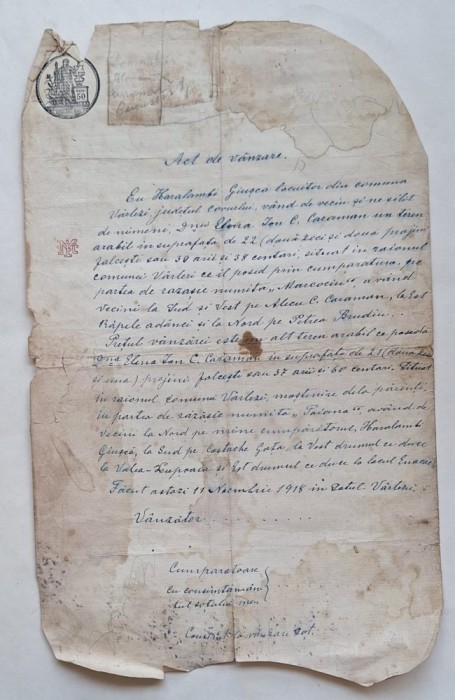 50
Act de vânzare.
Eu Haralambi Giușca locuitor din comuna
Vârlezi, județul Covurlui, vând de veci și ne silit
de nimeni, Dnei Elena Ion C. Caraman un teren
arabil în suprafața de 22 (două zeci și două prăjini
fălcești sau 39 arii și 38 centari, situat în raionul
comunei Vârlezi ce îl posed prin cumparatura, pe
partea de razasie numita „Marcociu", având
vecini la Sud și Vest pe Alecu C. Caraman, la Est
Râpele adânci și la Nord pe Petrea Brudiu.
Prețul vânzării este un alt teren arabil ce poseda
Dna Elena Ion C. Caraman în suprafața de 21 (două zeci
și una) prăjini fălcești sau 37 arii și 60 centari. Situat
în raionul comunei Vârlezi, moștenire dela părinți,
în partea de răzășie numita „Poiana", având de
vecini la Nord pe mine cumpărătorul, Haralambi
Giușcă, la Sud pe Costache Gața, la Vest drumul ce duce
la Valea-Lupoaia și Est drumul ce duce la locul
Făcut astăzi 11 Noembrie 1918 în satul Vârlezi.
Vânzător . . . . . . . .
Cumparatoare
cu consimțamân
tul soțului meu
la vânzare soț.